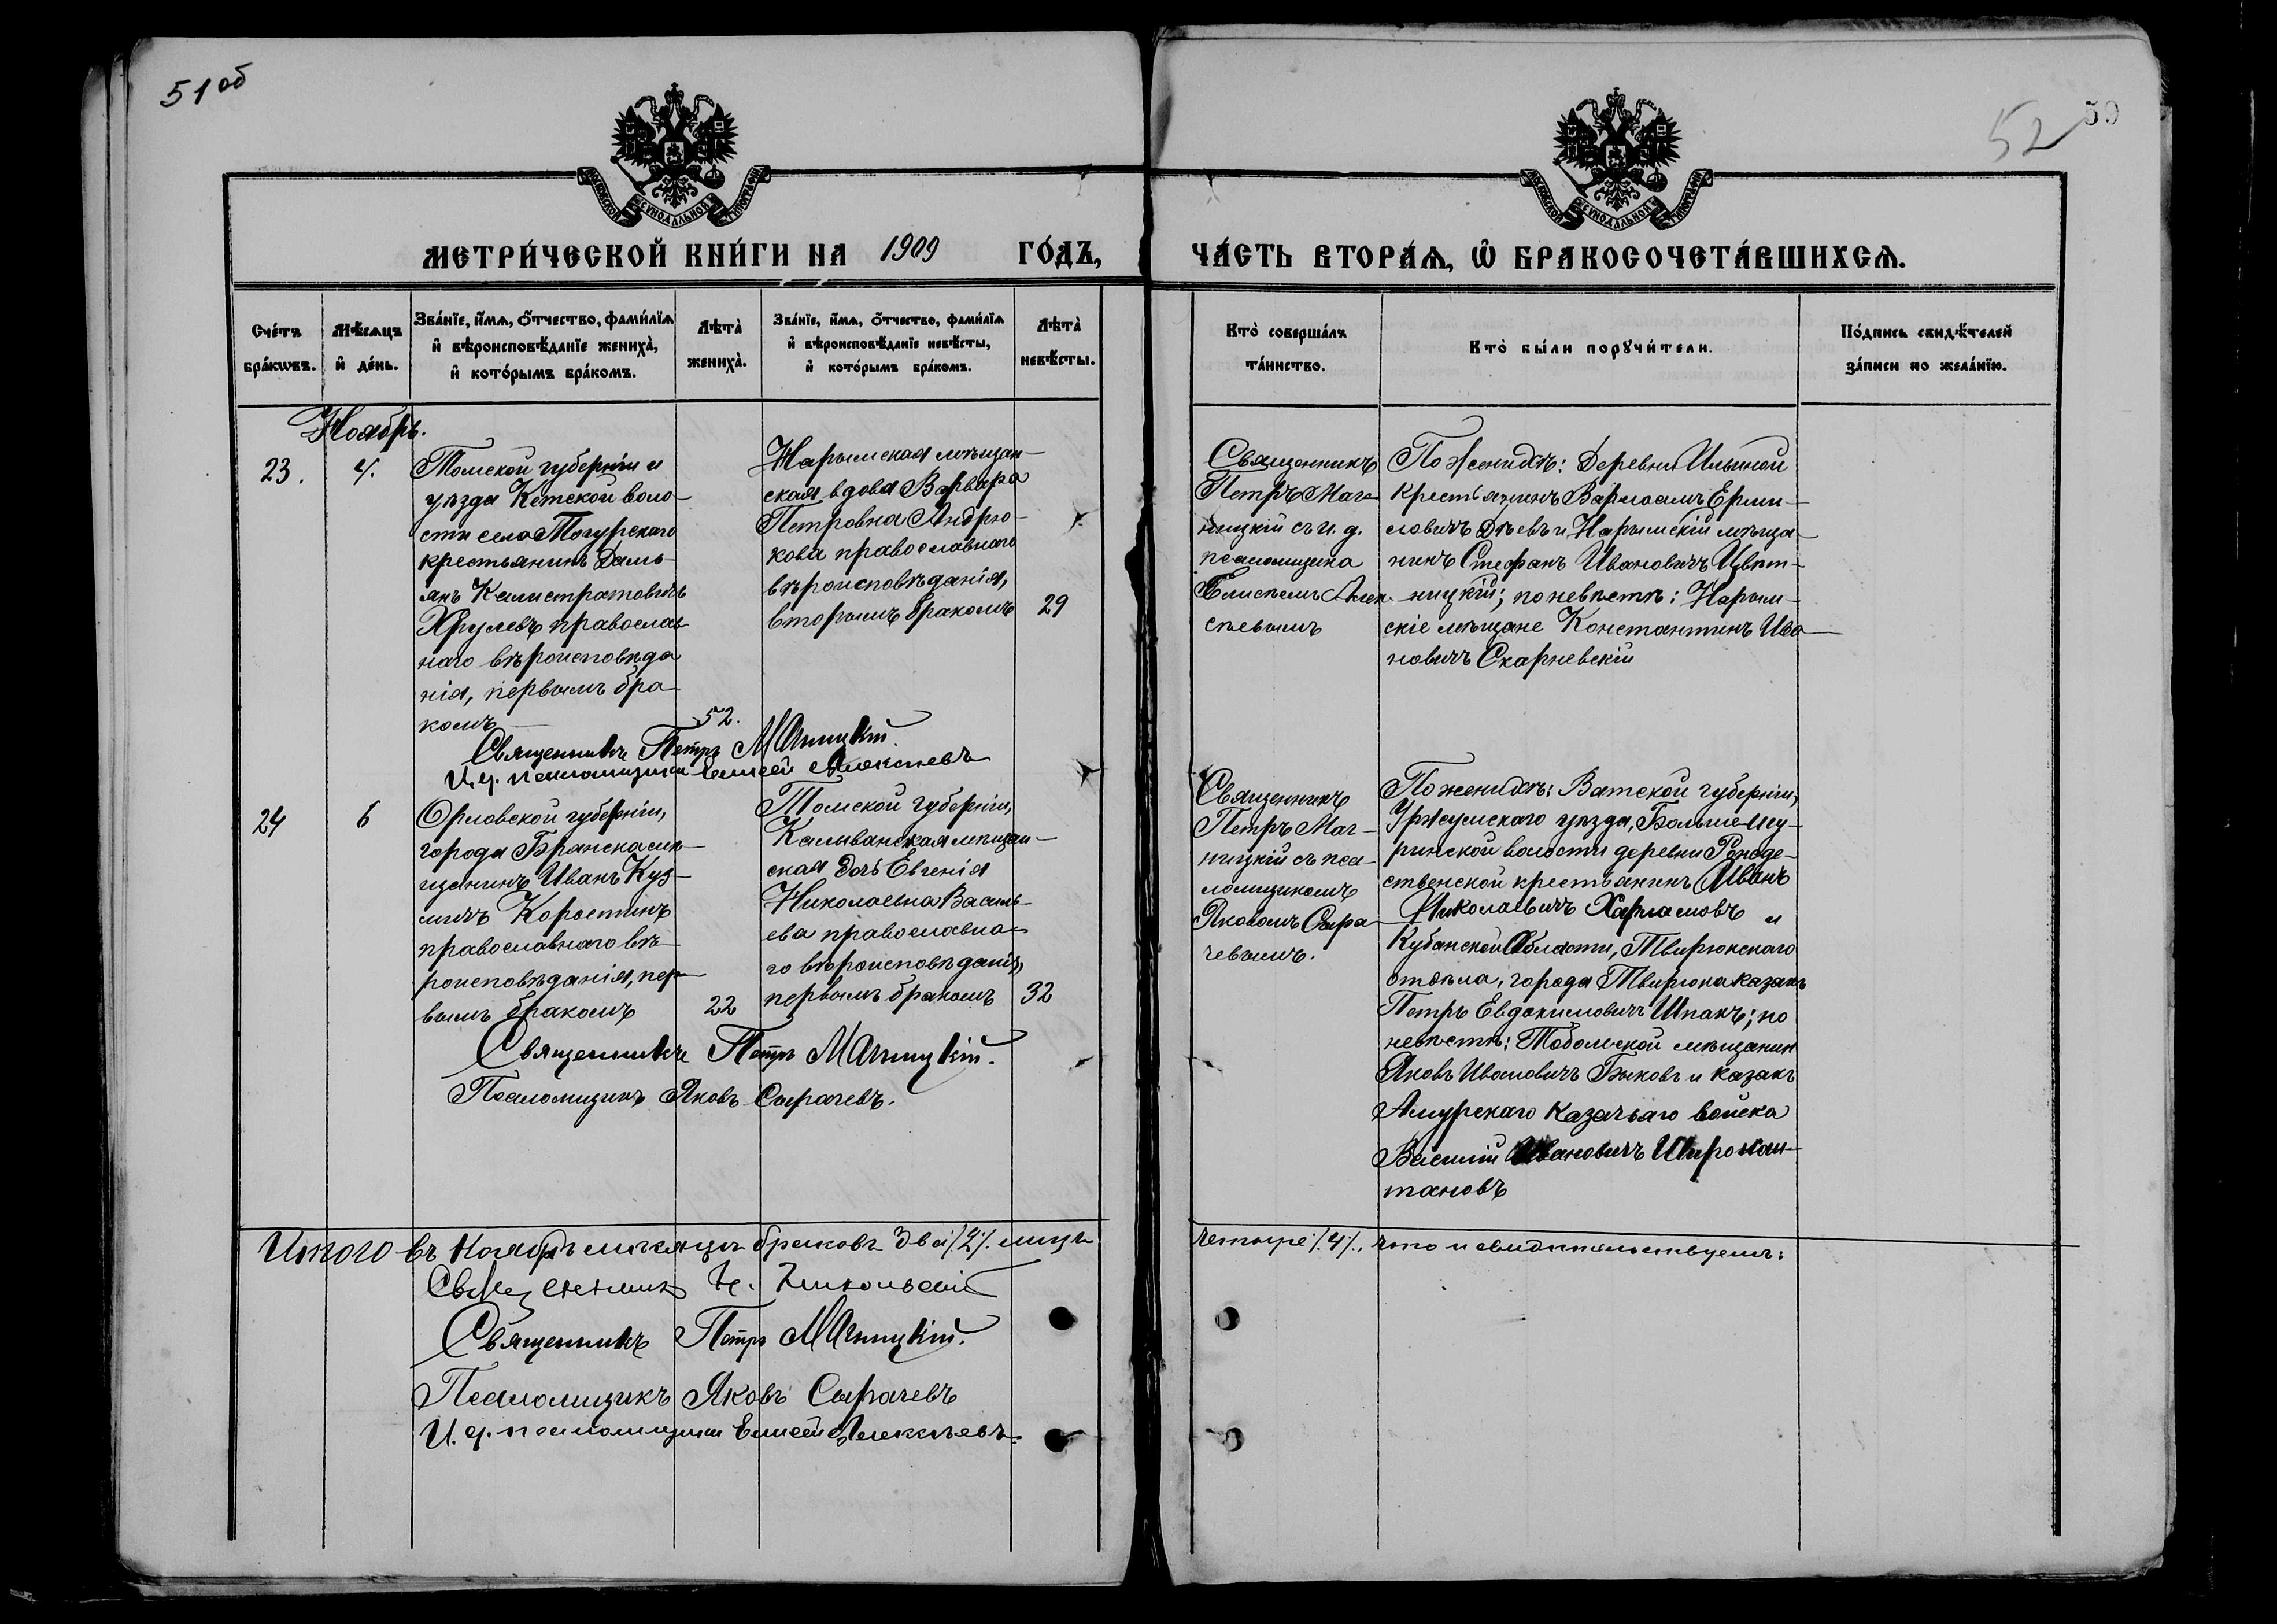 51 об
52
50
МОСКОВСКОЙ СѴНОДАЛЬНОЙ ТИПОГРАФІИ
МОСКОВСКОЙ СѴНОДАЛЬНОЙ ТИПОГРАФІИ
МЕТРИ́ЧЕСКОЙ КНИ́ГИ НА 1909 ГО́ДЪ,
ЧА́СТЬ ВТОРА́Ѧ, Ѡ҆ БРАКОСОЧЕТА́ВШИХСѦ.
Сче́тъ
бра́кѡвъ.
Мѣ́сѧцъ
и҆ де́нь.
Зва́нїе, и҆́мѧ, ѻ҆́тчество, фами́лїѧ
и҆ вѣроисповѣ́данїе жениха̀,
и҆ кото́рымъ бра́комъ.
Лѣта̀
жениха̀.
Зва́нїе, и҆́мѧ, ѻ҆́тчество, фами́лїѧ
и҆ вѣроисповѣ́данїе невѣ́сты,
и҆ кото́рымъ бра́комъ.
Лѣта̀
невѣ́сты.
Кто̀ соверша́лъ
та́инство.
Кто̀ бы́ли порꙋчи́тели.
По́дпись свидѣ́телей
за́писи по жела́нїю.
Ноябрь.
23.
4.
Томской губерніи и
уѣзда Кетской воло-
сти села Тогурскаго
крестьянинъ Дамь-
янъ Калистратовичъ
Хрулевъ православ
наго вѣроисповѣда
нія, первымъ бра-
комъ
52.
Нарымская мѣщан-
ская вдова Варвара
Петровна Андрю-
кова православнаго
вѣроисповѣданія,
вторымъ бракомъ
29
Священникъ
Петръ Маг-
ницкій съ и. д.
псаломщика
Елисѣемъ Алек-
сѣевымъ
По женихѣ: Деревни Ильиной
крестьянинъ Варлаамъ Ерми-
ловичъ Дѣевъ и Нарымскій мѣща-
нинъ Стефанъ Ивановичъ Цвѣт-
ницкій; по невѣстѣ: Нарым-
скіе мѣщане Константинъ Ива-
новичъ Скарневскій
Священникъ Петръ Магницкій.
И. д. псаломщика Елисей Алексѣевъ
24
6
Орловской губерніи,
города Брянска мѣ-
щанинъ Иванъ Куз-
мичъ Коростинъ
православнаго вѣ-
роисповѣданія, пер-
вымъ бракомъ
22
Томской губерніи,
Колыванская мѣщан-
ская дочь Евгенія
Николаевна Василь-
ева православна-
го вѣроисповѣданія,
первымъ бракомъ
32
Священникъ
Петръ Маг-
ницкій съ пса-
ломщикомъ
Яковомъ Сыра-
чевымъ.
По женихѣ: Вятской губерніи,
Уржумскаго уѣзда, Больше-Шу-
ринской волости деревни Рожде-
ственской крестьянинъ Иванъ
Николаевичъ Харламовъ и
Кубанской Области, Тѣмрюкскаго
отдѣла, города Тѣмрюка казакъ
Петръ Евдокимовичъ Шпакъ; по
невѣстѣ: Тобольской мѣщанин
Яковъ Ивановичъ Быковъ и казакъ
Амурскаго казачьяго войска
Василій Ивановичъ
тановъ
Священникъ Петръ Магницкій.
Псаломщикъ Яковъ Сырачевъ.
Итого въ ноябрѣ мѣсяцѣ браковъ два /2/. лицъ
четыре /.4/., что и свидѣтельствуемъ:
Священникъ Н. Никольскій
Священникъ Петръ Магницкій.
Псаломщикъ Яковъ Сырачевъ
И. д. псаломщика Елисей Алексѣевъ.